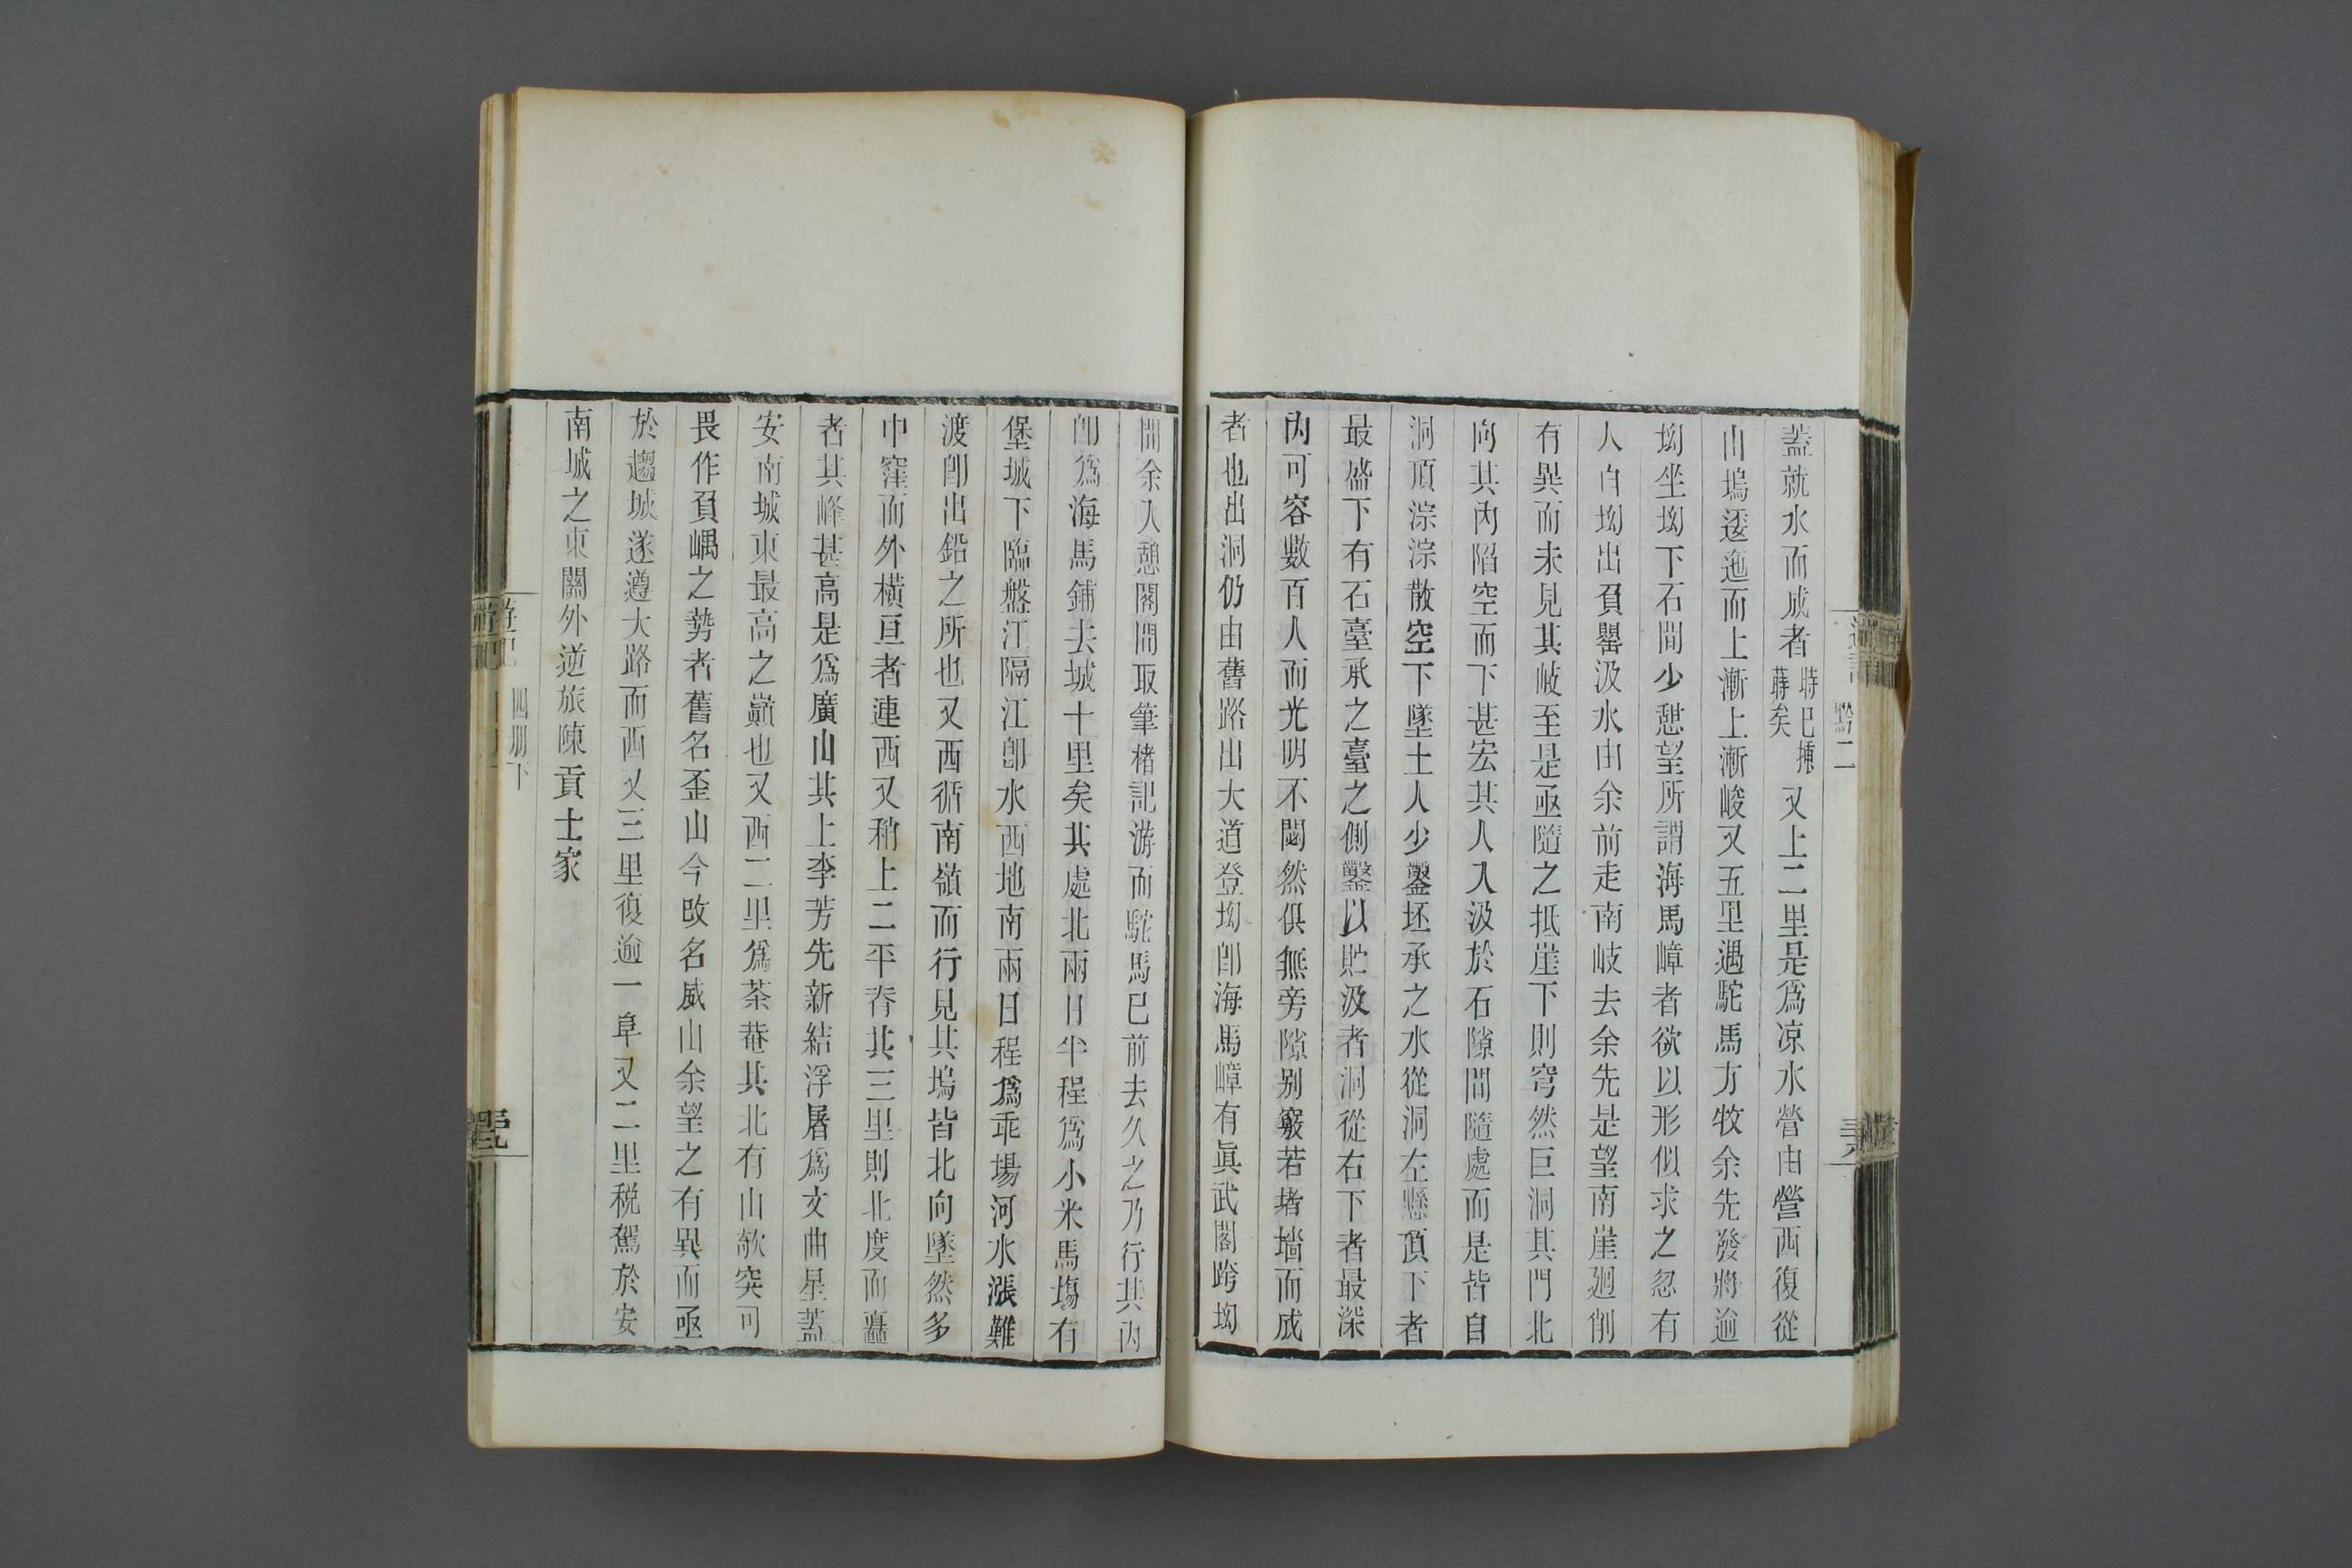 黔二
蓋就水而成者時已揷蒔矣又上二里是爲凉水營由營西復從
山塢逶迤而上漸上漸峻又五里遇駝馬方牧余先發將逾
坳坐坳下石間少憇望所謂海馬嶂者欲以形似求之忽有
人自坳出負罌汲水由余前走南岐去余先是望南崖廻削
有異而未見其岐至是亟隨之抵崖下則穹然巨洞其門北
向其內陷空而下甚宏其人入汲於石隙間隨處而是皆自
洞頂淙淙散空下墜土人少鑿坯承之水從洞左懸頂下者
最盛下有石臺承之臺之側鑿以貯汲者洞從右下者最深
內可容數百人而光明不閟然俱無旁隙别竅若堵墻而成
者也出洞仍由舊路出大道登坳卽海馬嶂有眞武閣跨坳
間余入憩閣間取筆楮記游而駝馬已前去久之乃行其內
卽爲海馬鋪去城十里矣其處北兩日半程爲小米馬塲有
堡城下臨盤江隔江卽水西地南兩日程爲乖場河水漲難
渡卽出鉛之所也又西循南嶺而行見其塢皆北向墜然多
中窪而外橫亘者連西又稍上二平脊共三里則北度而矗
者其峰甚高是爲廣山其上李芳先新結浮屠爲文曲星蓋
安南城東最高之巔也又西二里爲茶菴其北有山欹突可
畏作負嵎之勢者舊名歪山今改名威山余望之有異而亟
於趨城遂遵大路而西又三里復逾一阜又二里税駕於安
南城之東關外逆旅陳貢士家
遊記
四册下